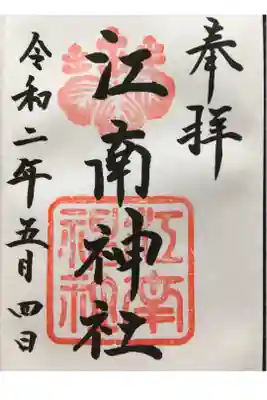 奉拝
江南神社
江南
神社
令和二年五月四日